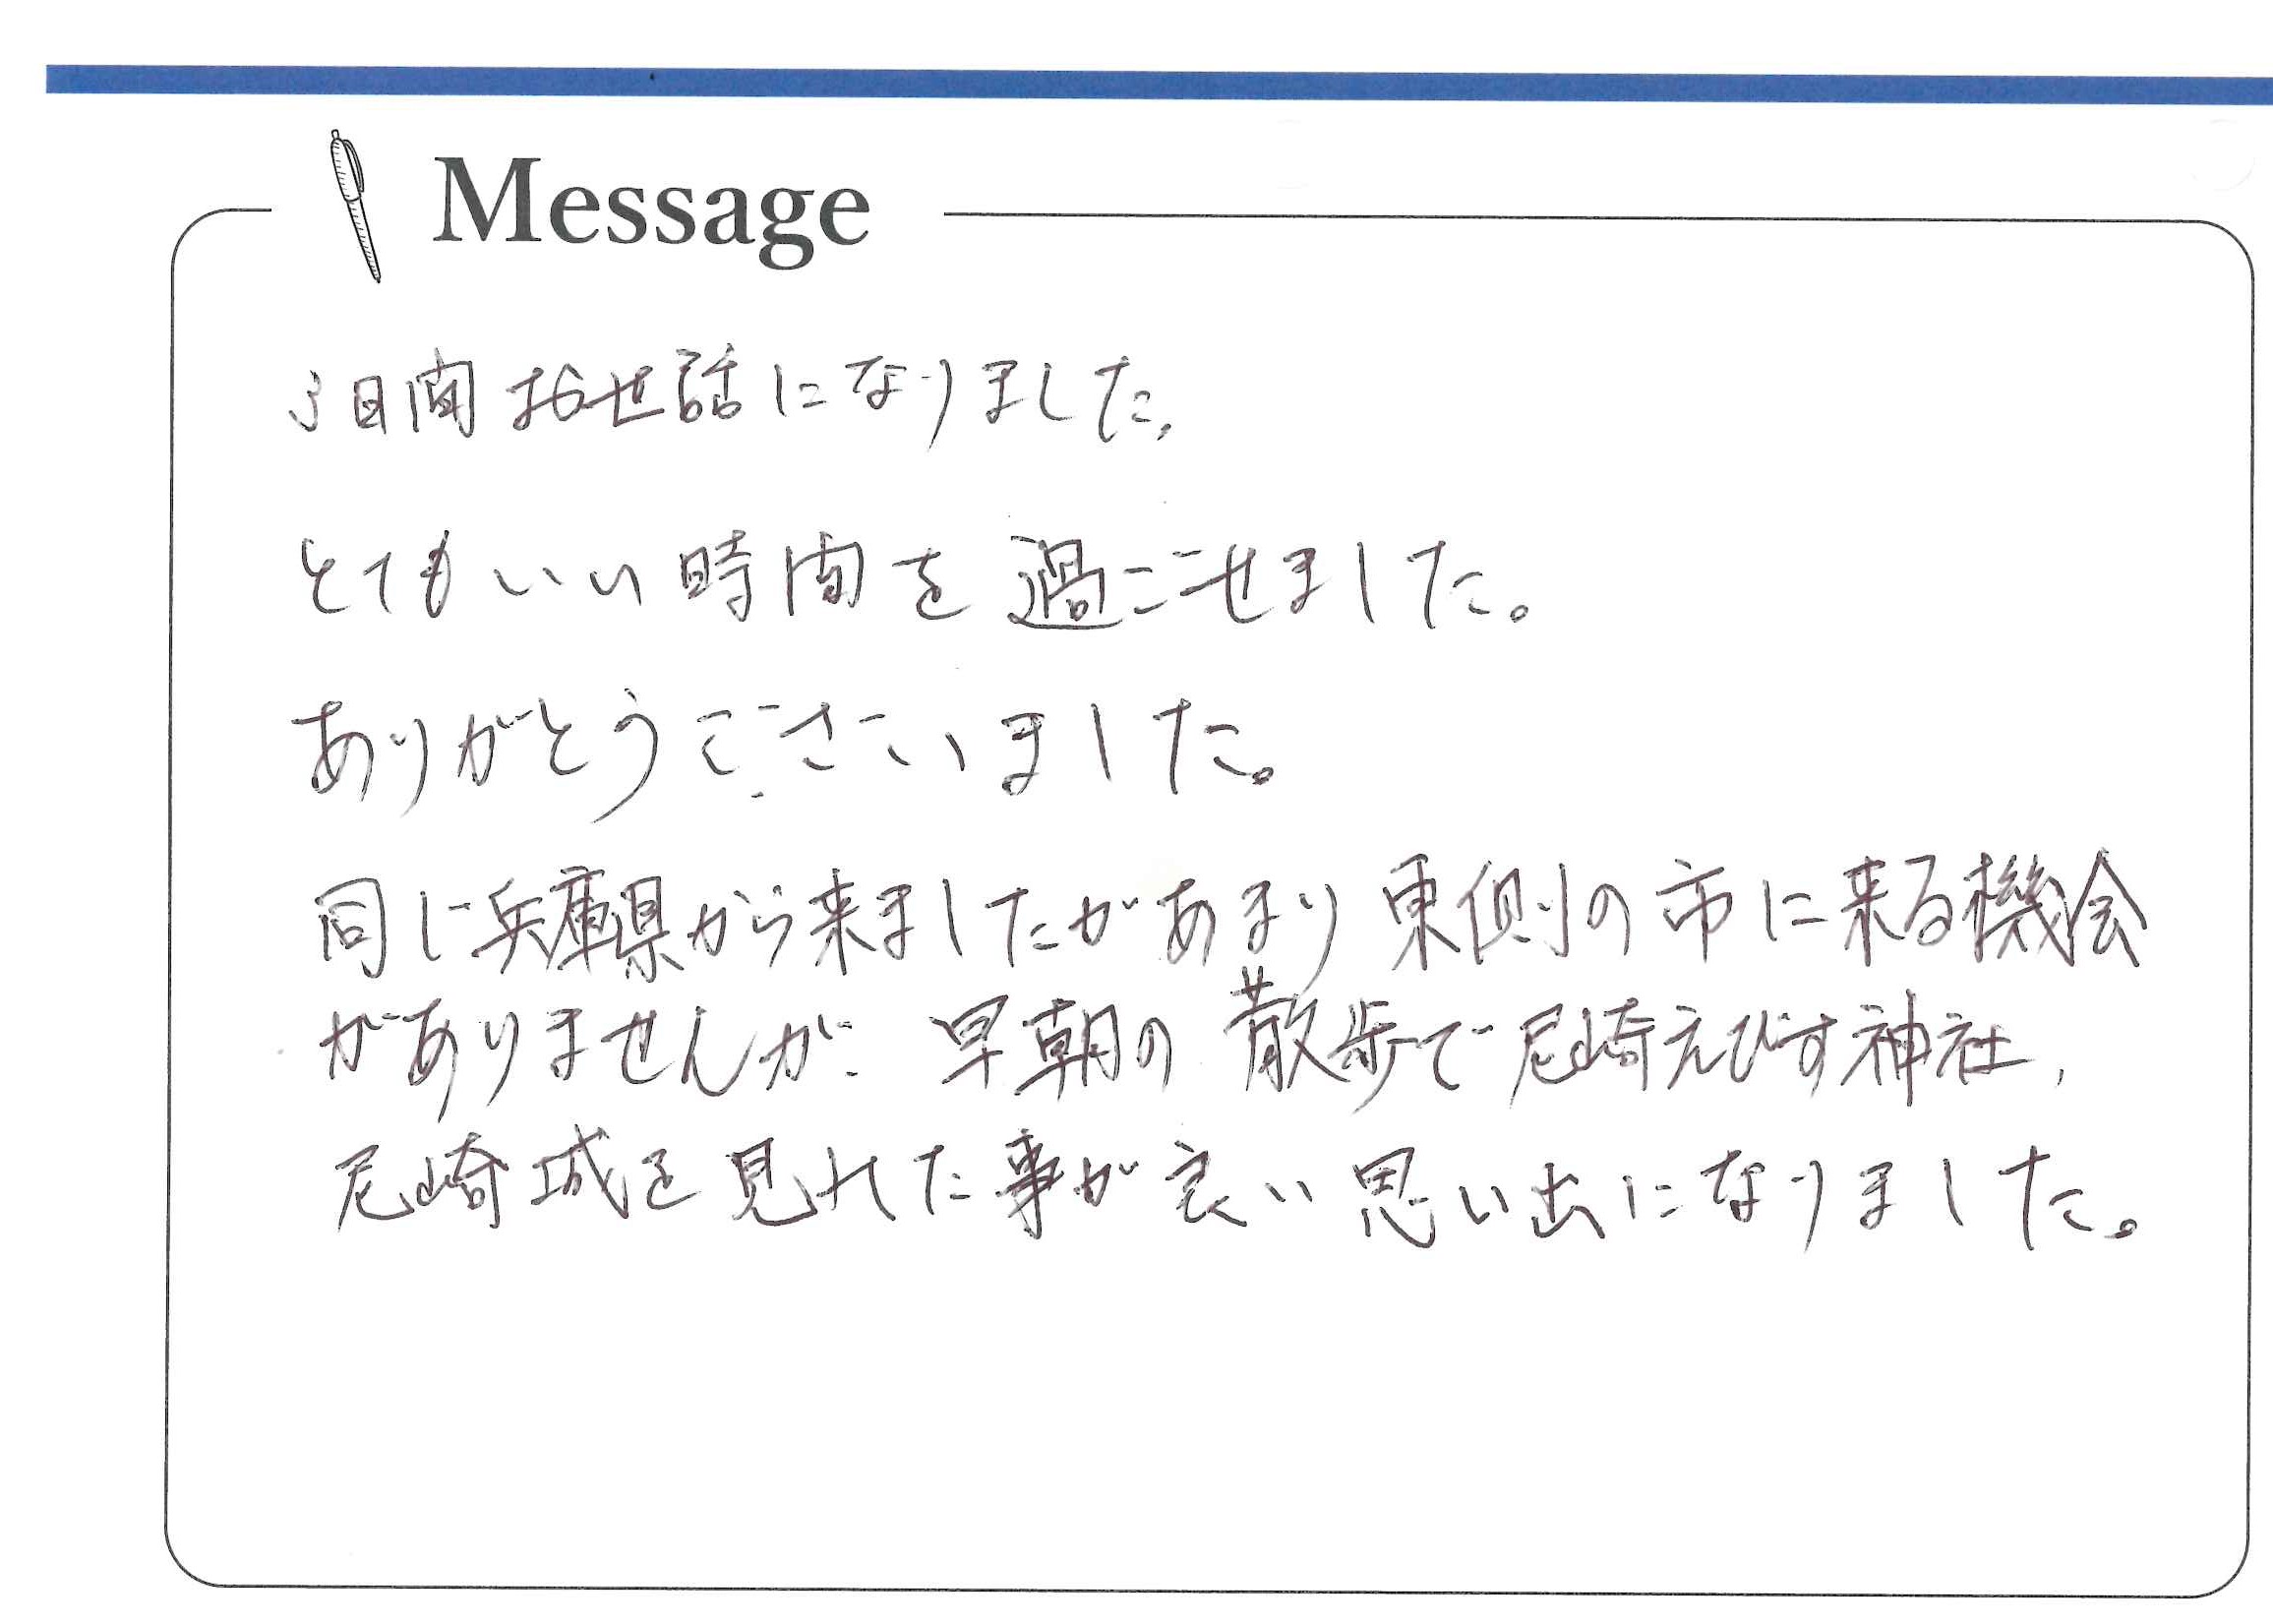 Message
3日間お世話になりました。
とてもいい時間を過ごせました。
ありがとうございました。
同じ兵庫県から来ましたがあまり東側の市に来る機会
がありませんが、早朝の散歩で尼崎えびす神社、
尼崎城を見れた事が良い思い出になりました。